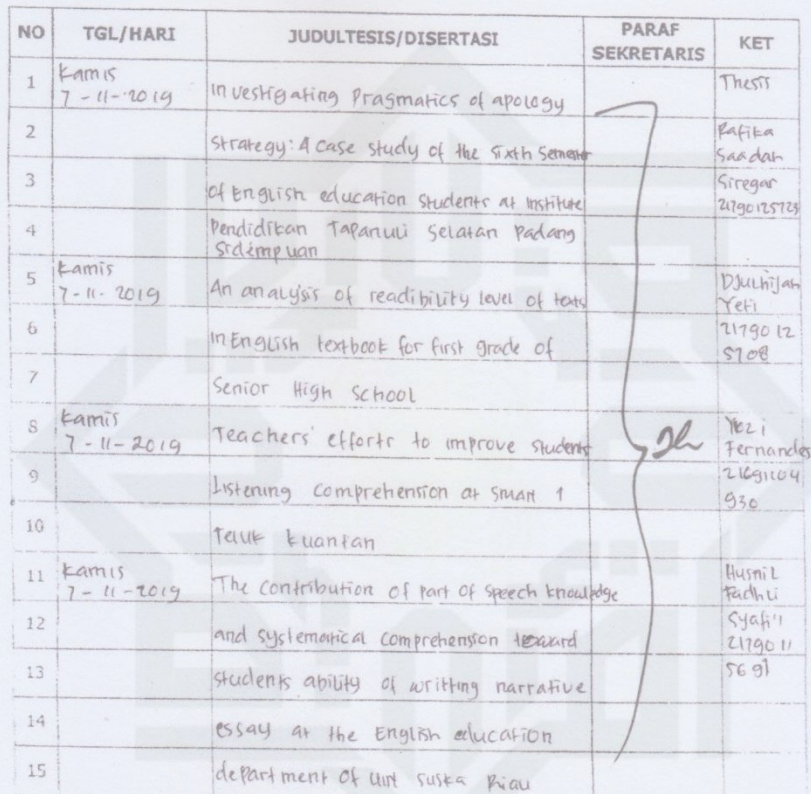 NO TGL/HARI JUDULTESIS/DISERTASI PARAF SEKRETARIS KET
1 Kamis 7-11-2019 Investigating Pragmatics of apology Thesis
2 Strategy: A case study of the sixth semester Rafika Saadah
3 of English education students at Institute Siregar 21790125725
4 Pendidikan Tapanuli Selatan Padang
Sidempuan
5 Kamis 7-11-2019 An analysis of readibility level of texts Yeti
6 in English textbook for first grade of 2179012 5708
7 Senior High School
8 Kamis 7-11-2019 Teachers' efforts to improve students Yezi Fernandes
9 Listening comprehension at SMAN 1 21691104
930
10 Teluk Kuantan
11 Kamis 7-11-2019 The contribution of part of speech knowledge Husnil Fadhli
12 and systematical comprehension toward Syafi'i 2179011
13 students ability of writting narrative 5691
14 essay at the English education
15 department of UIN Suska Riau